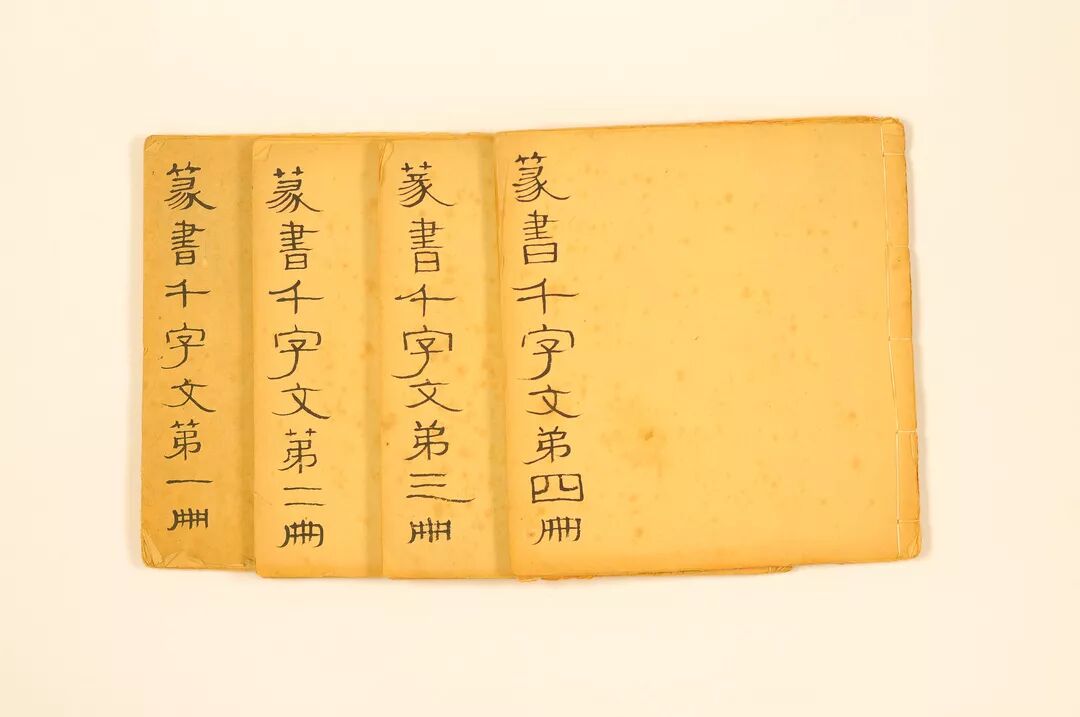 篆書千字文第一冊
篆書千字文第二冊
篆書千字文弟三冊
篆書千字文弟四冊